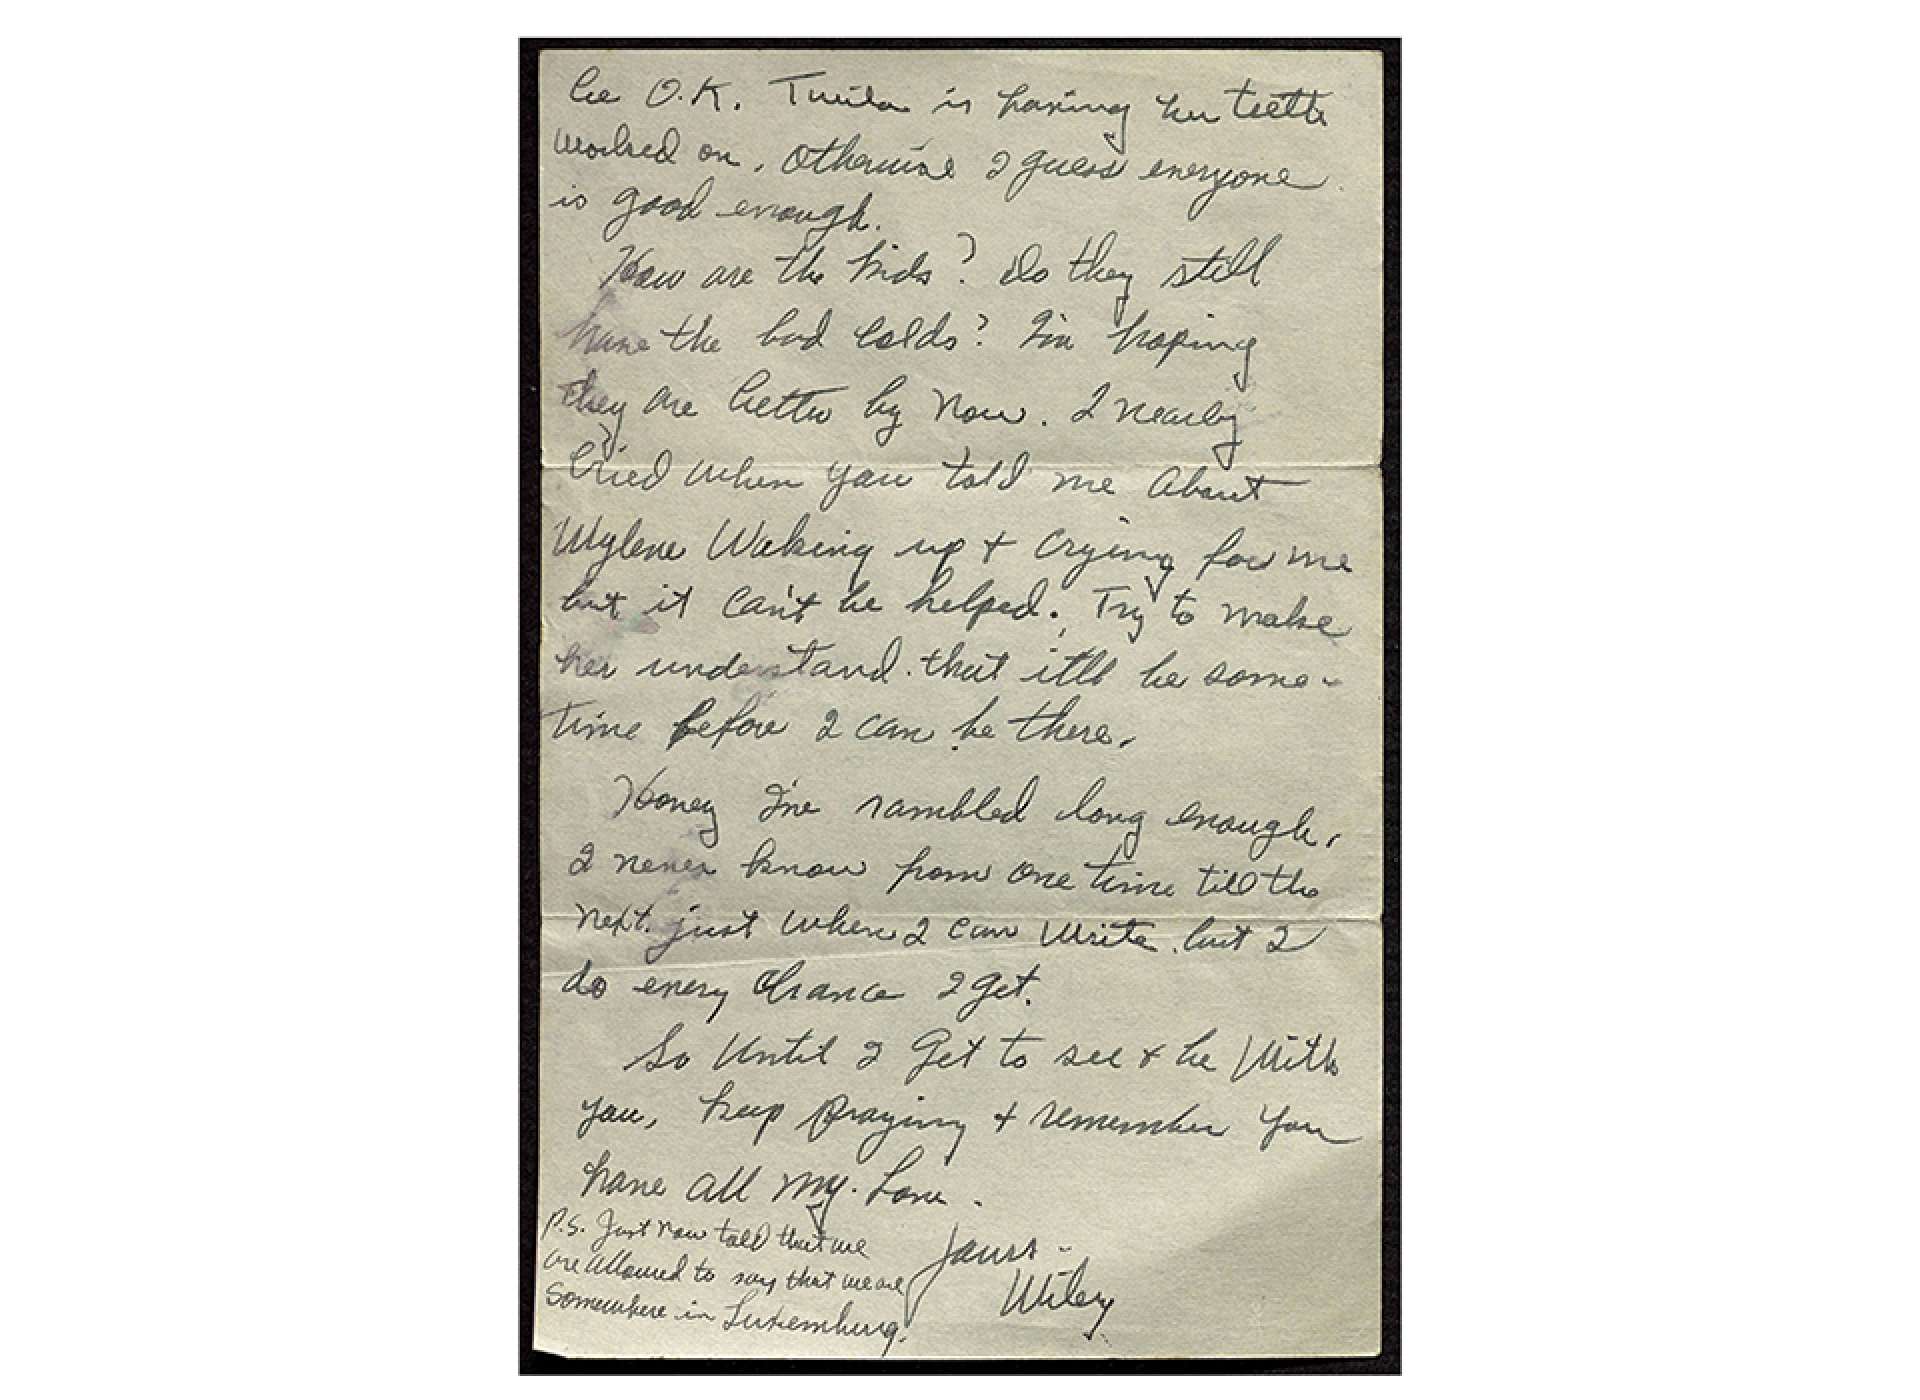 be O.K. Twila is having her teeth
worked on. Otherwise I guess everyone
is good enough.
How are the kids? Do they still
have the bad colds? I'm hoping
they are better by now. I nearly
cried when you told me about
Wylene Waking up + crying for me
but it can't be helped. Try to make
her understand that it'll be some-
time before I can be there.
Honey I've rambled long enough.
I never know from one time till the
next just when I can write, but I
do every chance I get.
So Until I get to see + be With
you, keep praying + remember you
have all my Love.
Yours -
Wiley
P.S. Just now told that we
are allowed to say that we are
Somewhere in Luxemburg.